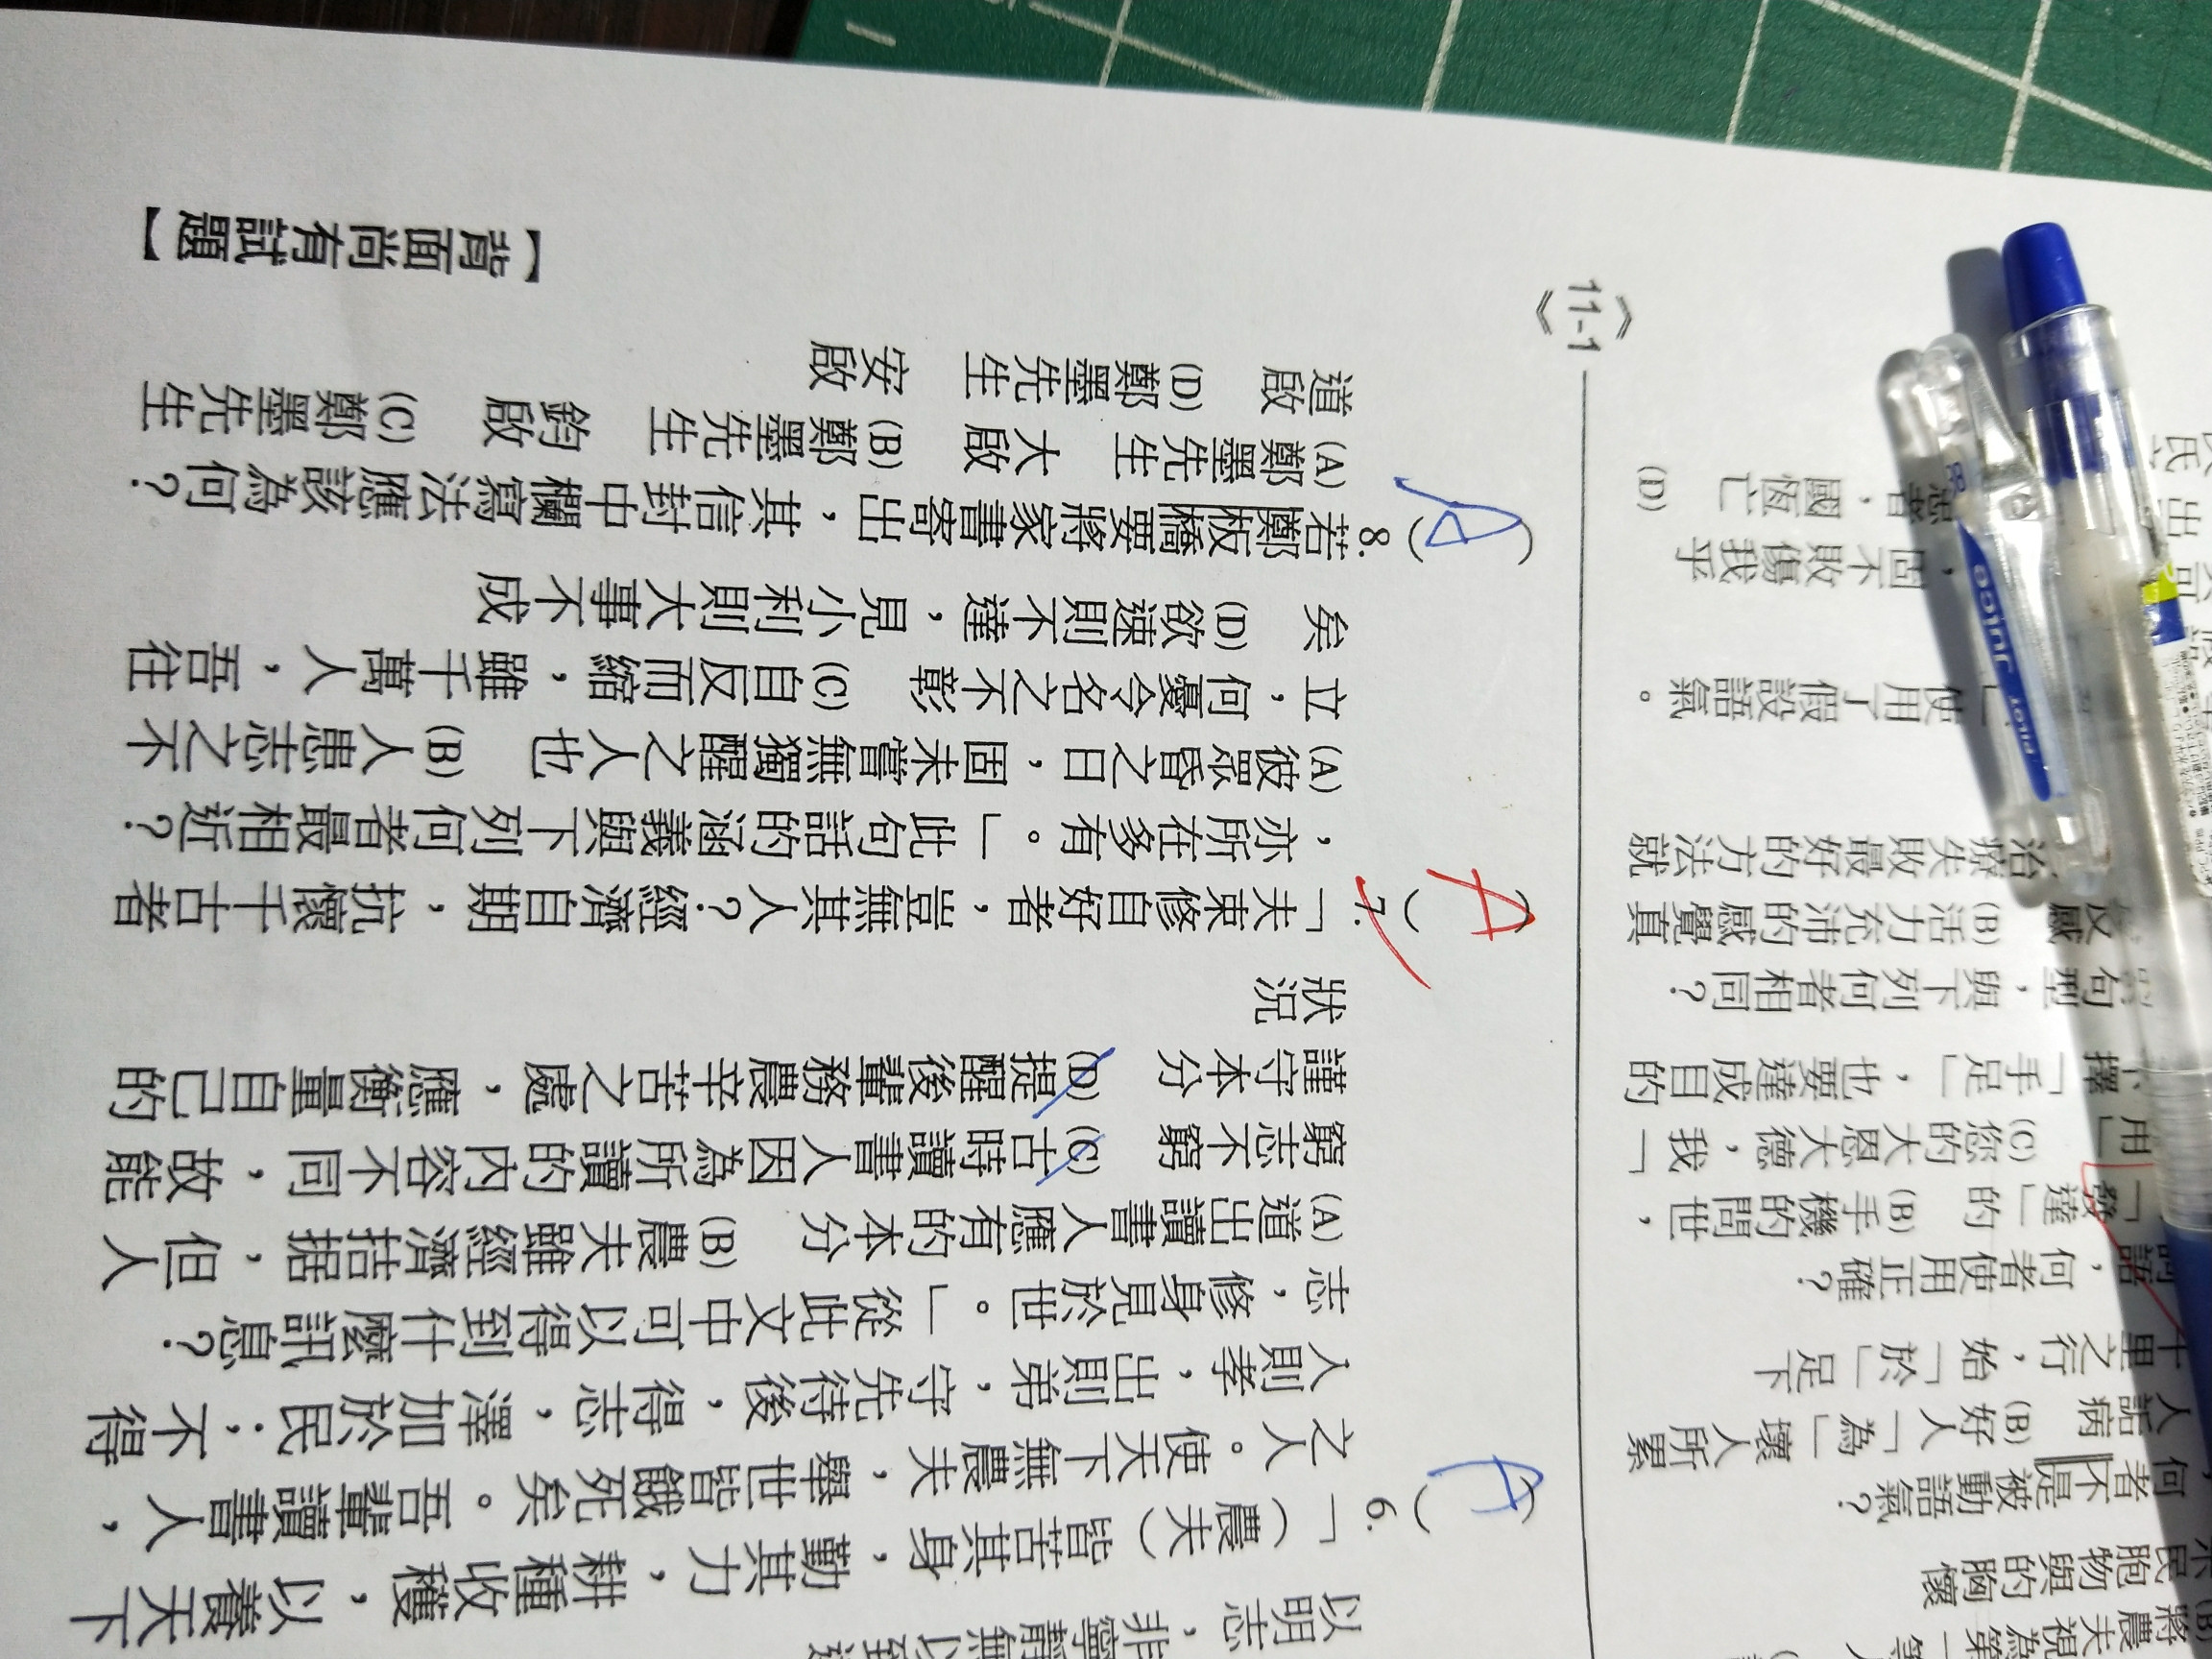 將農夫視為第一等人
民胞物與的胸懷
何者不是被動語氣？
人詬病 (B)好人「為」壞人所累
千里之行，始「於」足下
語，何者使用正確？
「發達」的 (B)手機的問世，
用」 (C)您的大恩大德，我「
擇「手足」，也要達成目的
句型，與下列何者相同？
反感 (B)活力充沛的感覺真
治療失敗最好的方法就
使用了假設語氣。
，固不敗傷我乎
者，國恆亡 (D)
以明志，非寧靜無以致遠
(A)6.「（農夫）皆苦其身，勤其力，耕種收穫，以養天下
之人。使天下無農夫，舉世皆餓死矣。吾輩讀書人，
入則孝，出則弟，守先待後，得志，澤加於民；不得
志，修身見於世。」從此文中可以得到什麼訊息？
(A)道出讀書人應有的本分 (B)農夫雖經濟拮据，但人
窮志不窮 (C)古時讀書人因為所讀的內容不同，故能
謹守本分 (D)提醒後輩務農辛苦之處，應衡量自己的
狀況
(A)7.「夫束修自好者，豈無其人？經濟自期，抗懷千古者
，亦所在多有。」此句話的涵義與下列何者最相近？
(A)彼眾昏之日，固未嘗無獨醒之人也 (B)人患志之不
立，何憂令名之不彰 (C)自反而縮，雖千萬人，吾往
矣 (D)欲速則不達，見小利則大事不成
(A)8.若鄭板橋要將家書寄出，其信封中欄寫法應該為何？
(A)鄭墨先生 大啟 (B)鄭墨先生 鈞啟 (C)鄭墨先生
道啟 (D)鄭墨先生 安啟
《11-1》
【背面尚有試題】
PILOT juice